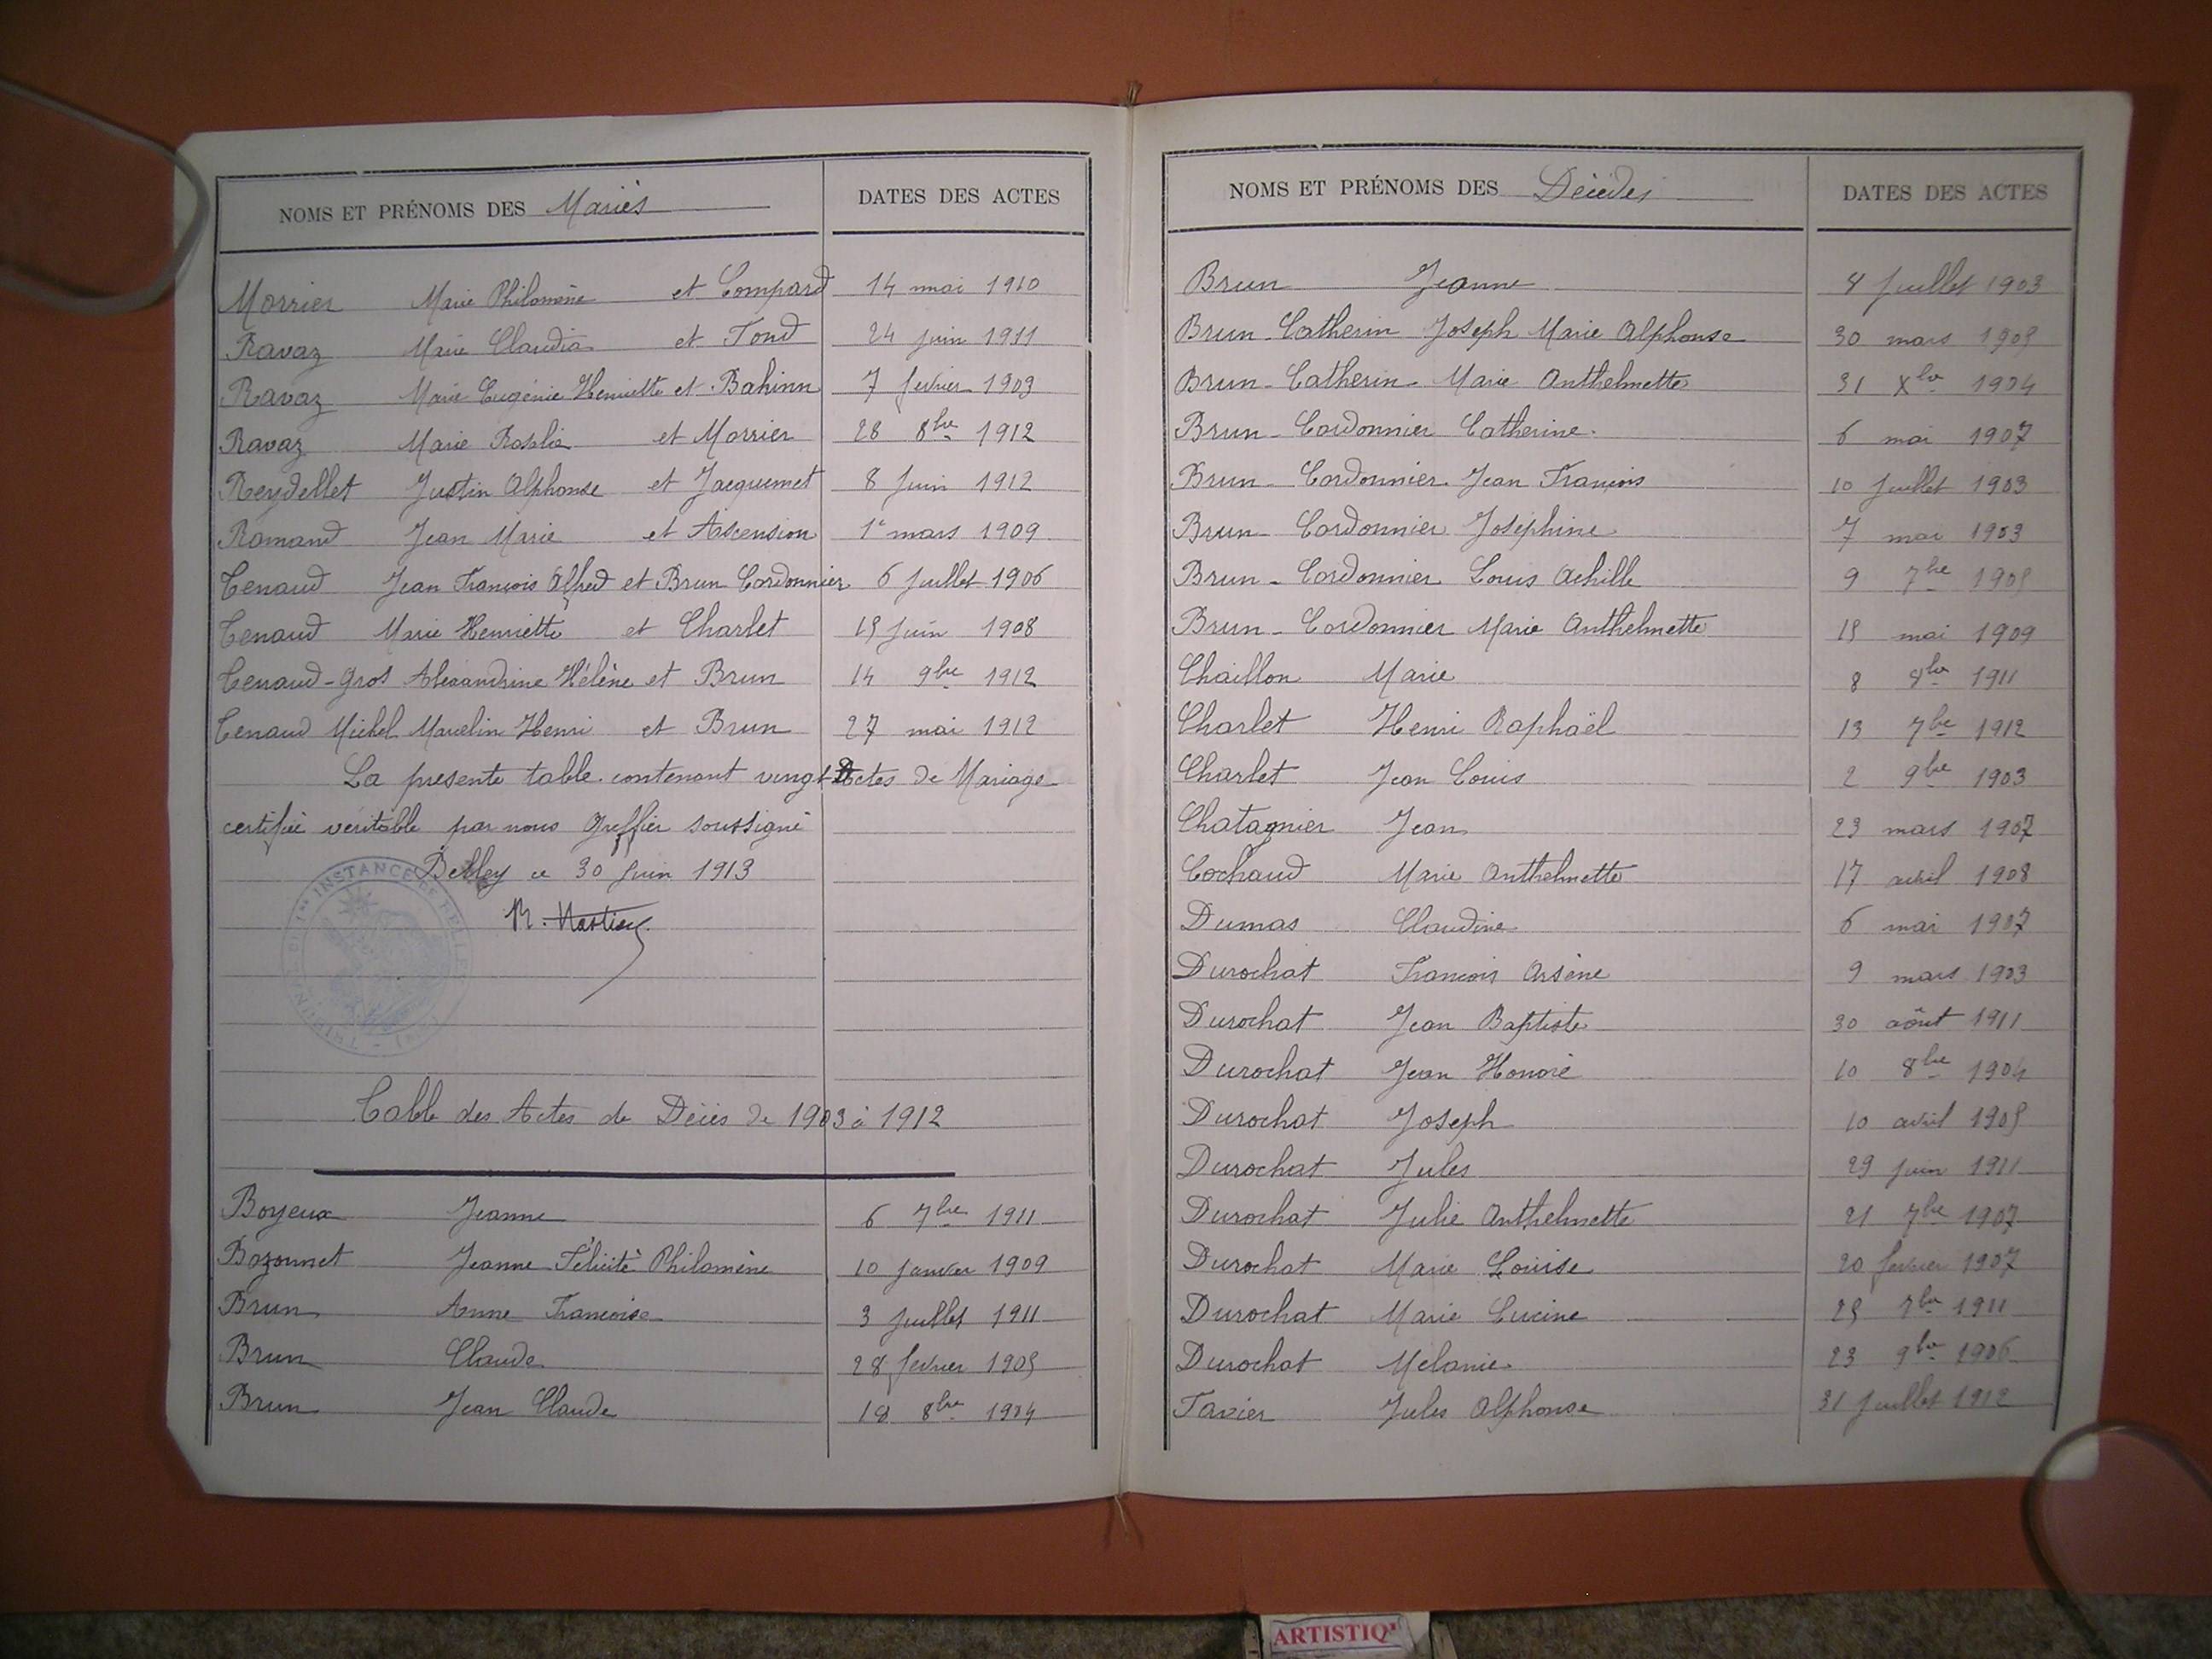 NOMS ET PRÉNOMS DES Mariés
DATES DES ACTES
Morrier Marie Philomène et Compard 14 mai 1910
Ravaz Marie Claudia et Fond 24 juin 1911
Ravaz Marie Eugénie Henriette et Bahinn 7 fevrier 1903
Ravaz Marie et Morrier 28 8bre 1912
Reydellet Justin Alphonse et Jacquemet 8 Juin 1912
Romand Jean Marie et Ascension 1e mars 1909
Tenaud Jean François Alfred et Brun Cordonnier 6 Juillet 1906
Tenaud Marie Henriette et Charlet 15 Juin 1908
Tenaud-Gros Alexandrine Hélène et Brun 14 9bre 1912
Tenaud Michel Marcelin Henri et Brun 27 mai 1912
La presente table contenant vingt Actes de Mariage
certifiée veritable par nous Greffier soussigné
Belley ce 30 Juin 1913
INSTANCE DE BELLEY
Table des Actes de Décès de 1903 à 1912
Boyeux Jeanne 6 7bre 1911
Bozonnet Jeanne Félicité Philomène 10 Janvier 1909
Brun Anne Francoise 3 Juillet 1911
Brun Claude 28 fevrier 1905
Brun Jean Claude 18 8bre 1904
NOMS ET PRÉNOMS DES Décédés
DATES DES ACTES
Brun Jeanne 8 Juillet 1903
Brun-Catherin Joseph Marie Alphonse 30 mars 1905
Brun-Catherin-Marie Anthelmette 31 Xbre 1904
Brun-Cordonnier Catherine. 6 mai 1907
Brun-Cordonnier Jean François 10 Juillet 1903
Brun-Cordonnier Joséphine 7 mai 1903
Brun-Cordonnier Louis Achille 9 7bre 1905
Brun-Cordonnier Marie Anthelmette 15 mai 1909
Chaillon Marie 8 8bre 1911
Charlet Henri Raphaël 13 7bre 1912
Charlet Jean Louis 2 9bre 1903
Chatagnier Jean 23 mars 1907
Cochaud Marie Anthelmette 17 avril 1908
Dumas Claudine 6 mai 1907
Durochat Francois Arsène 9 mars 1903
Durochat Jean Baptiste 30 aôut 1911
Durochat Jean Honoré 10 8bre 1904
Durochat Joseph 10 avril 1905
Durochat Jules 29 Juin 1911
Durochat Julie Anthelmette 21 7bre 1907
Durochat Marie Louise 20 fevrier 1907
Durochat Marie Lucine 25 7bre 1911
Durochat Melanie 23 9bre 1906
Favier Jules Alphonse 31 Juillet 1912
ARTISTIQ'